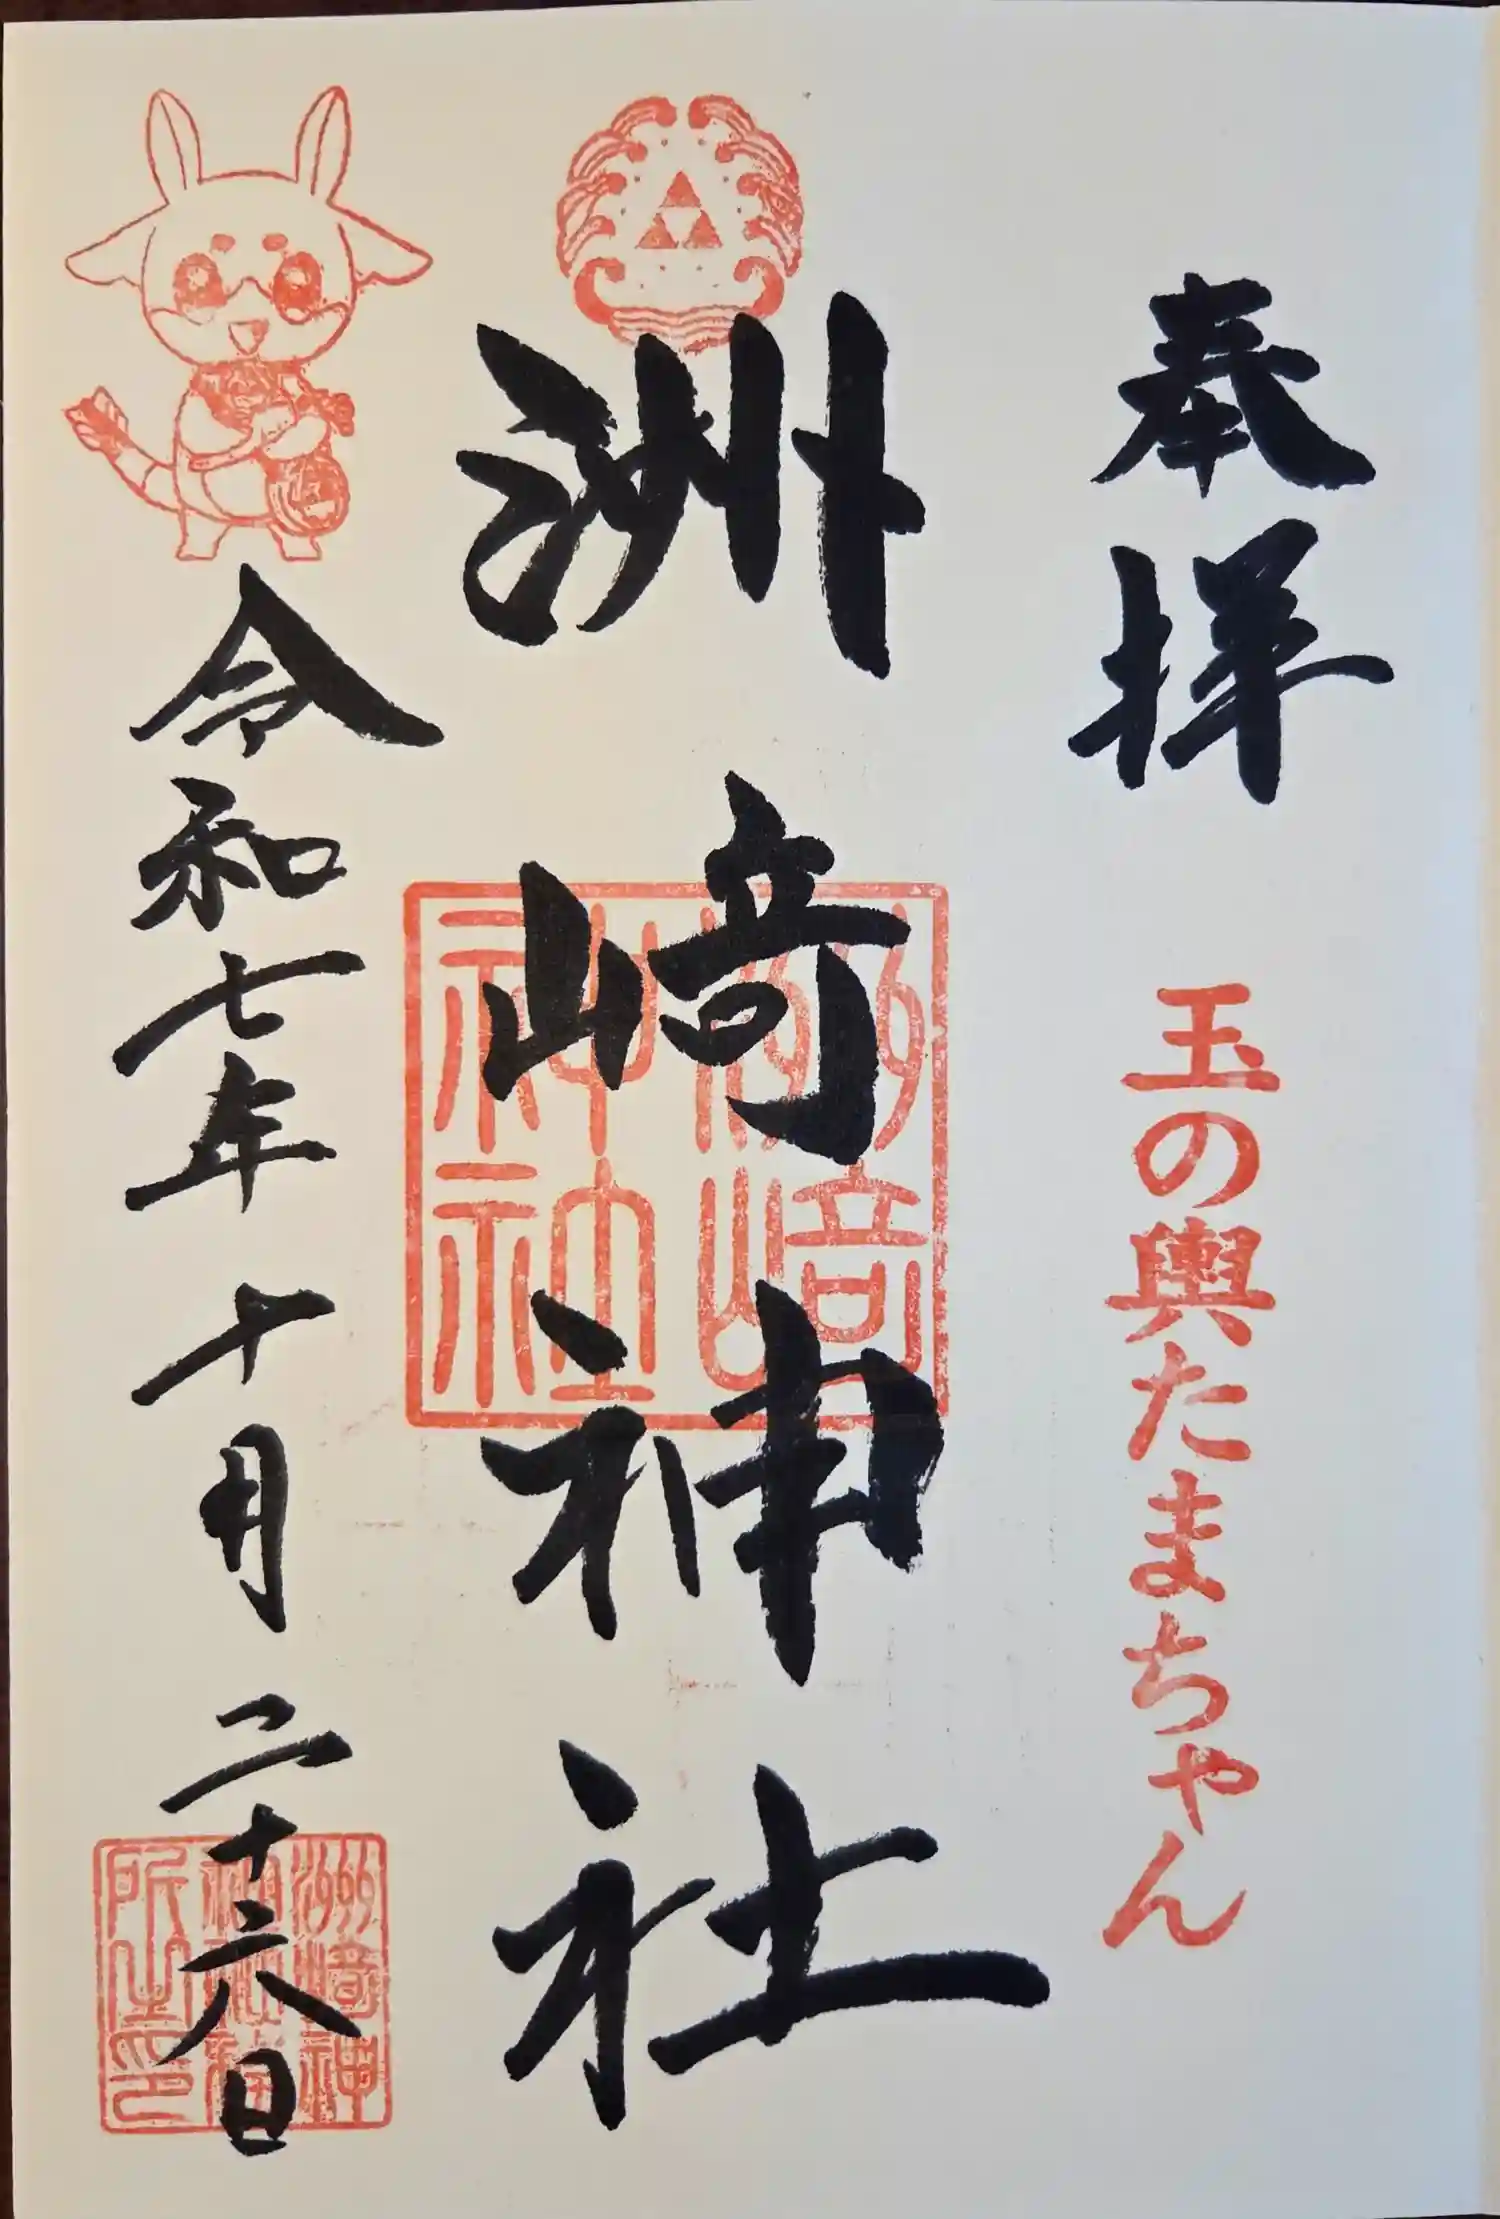 奉拝
玉の輿たまちゃん
洲崎神社
洲崎
神社
令和七年十月二十六日
洲崎神
社社務
所之印